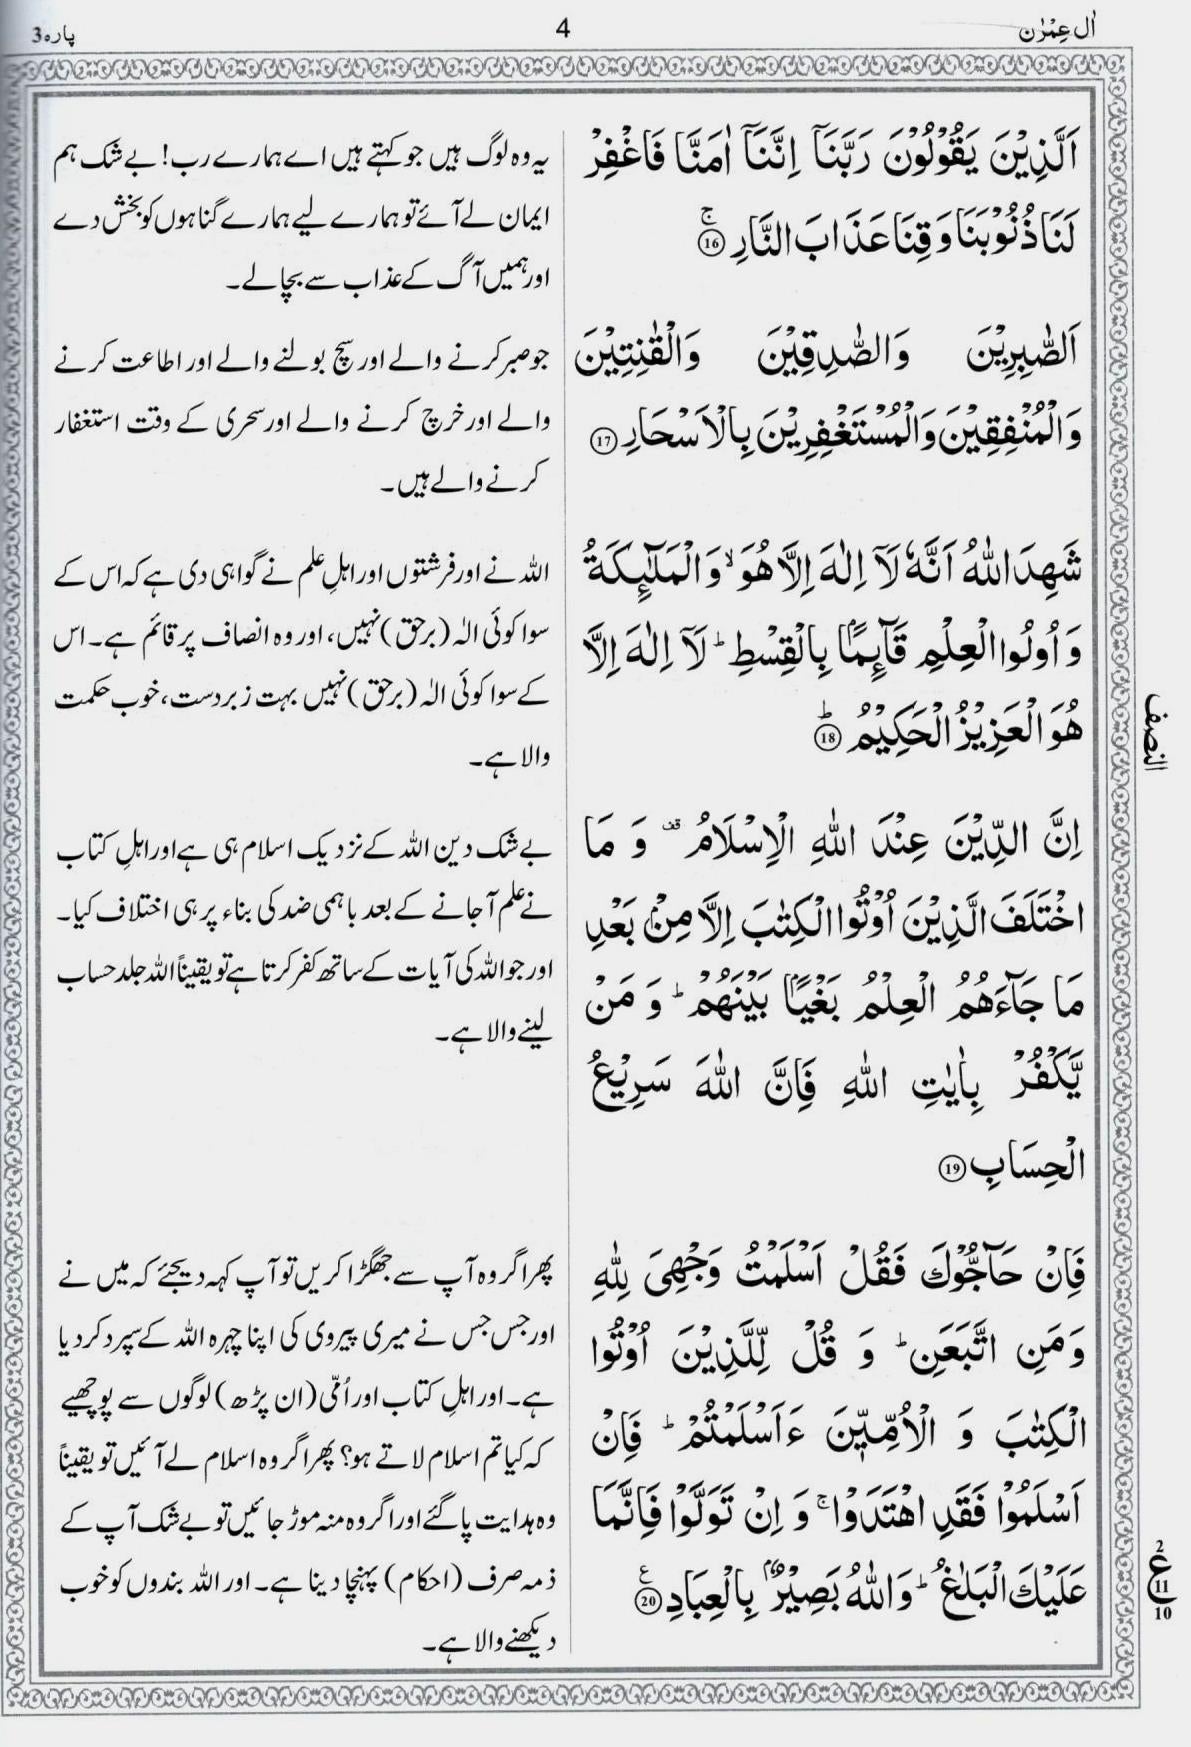 اٰل عِمْرٰن
4
پارہ 3
اَلَّذِيْنَ يَقُوْلُوْنَ رَبَّنَاۤ اِنَّنَاۤ اٰمَنَّا فَاغْفِرْ
لَنَا ذُنُوْبَنَا وَقِنَا عَذَابَ النَّارِ ۚ ⑯
اَلصّٰبِرِيْنَ وَالصّٰدِقِيْنَ وَالْقٰنِتِيْنَ
وَالْمُنْفِقِيْنَ وَالْمُسْتَغْفِرِيْنَ بِالْاَسْحَارِ ⑰
شَهِدَ اللّٰهُ اَنَّهٗ لَاۤ اِلٰهَ اِلَّا هُوَ ۙ وَالْمَلٰٓئِكَةُ
وَاُولُوا الْعِلْمِ قَآئِمًۢا بِالْقِسْطِ ؕ لَاۤ اِلٰهَ اِلَّا
هُوَ الْعَزِيْزُ الْحَكِيْمُ ؕ ⑱
اِنَّ الدِّيْنَ عِنْدَ اللّٰهِ الْاِسْلَامُ ۟ وَ مَا
اخْتَلَفَ الَّذِيْنَ اُوْتُوا الْكِتٰبَ اِلَّا مِنْۢ بَعْدِ
مَا جَآءَهُمُ الْعِلْمُ بَغْيًۢا بَيْنَهُمْ ؕ وَ مَنْ
يَّكْفُرْ بِاٰيٰتِ اللّٰهِ فَاِنَّ اللّٰهَ سَرِيْعُ
الْحِسَابِ ⑲
فَاِنْ حَآجُّوْكَ فَقُلْ اَسْلَمْتُ وَجْهِيَ لِلّٰهِ
وَمَنِ اتَّبَعَنِ ؕ وَ قُلْ لِّلَّذِيْنَ اُوْتُوا
الْكِتٰبَ وَ الْاُمِّيّٖنَ ءَاَسْلَمْتُمْ ؕ فَاِنْ
اَسْلَمُوْا فَقَدِ اهْتَدَوْا ۚ وَ اِنْ تَوَلَّوْا فَاِنَّمَا
عَلَيْكَ الْبَلٰغُ ؕ وَاللّٰهُ بَصِيْرٌۢ بِالْعِبَادِ ⑳ ع
یہ وہ لوگ ہیں جو کہتے ہیں اے ہمارے رب! بے شک ہم
ایمان لے آئے تو ہمارے لیے ہمارے گناہوں کو بخش دے
اور ہمیں آگ کے عذاب سے بچا لے۔
جو صبر کرنے والے اور سچ بولنے والے اور اطاعت کرنے
والے اور خرچ کرنے والے اور سحری کے وقت استغفار
کرنے والے ہیں۔
اللہ نے اور فرشتوں اور اہلِ علم نے گواہی دی ہے کہ اس کے
سوا کوئی الٰہ (برحق) نہیں، اور وہ انصاف پر قائم ہے۔ اس
کے سوا کوئی الٰہ (برحق) نہیں بہت زبردست، خوب حکمت
والا ہے۔
بے شک دین اللہ کے نزدیک اسلام ہی ہے اور اہلِ کتاب
نے علم آ جانے کے بعد باہمی ضد کی بناء پر ہی اختلاف کیا۔
اور جو اللہ کی آیات کے ساتھ کفر کرتا ہے تو یقیناً اللہ جلد حساب
لینے والا ہے۔
پھر اگر وہ آپ سے جھگڑا کریں تو آپ کہہ دیجئے کہ میں نے
اور جس جس نے میری پیروی کی اپنا چہرہ اللہ کے سپرد کر دیا
ہے۔ اور اہلِ کتاب اور اُمّی (ان پڑھ) لوگوں سے پوچھیے
کہ کیا تم اسلام لاتے ہو؟ پھر اگر وہ اسلام لے آئیں تو یقیناً
وہ ہدایت پا گئے اور اگر وہ منہ موڑ جائیں تو بے شک آپ کے
ذمہ صرف (احکام) پہنچا دینا ہے۔ اور اللہ بندوں کو خوب
دیکھنے والا ہے۔
النصف
2
ع
11
10